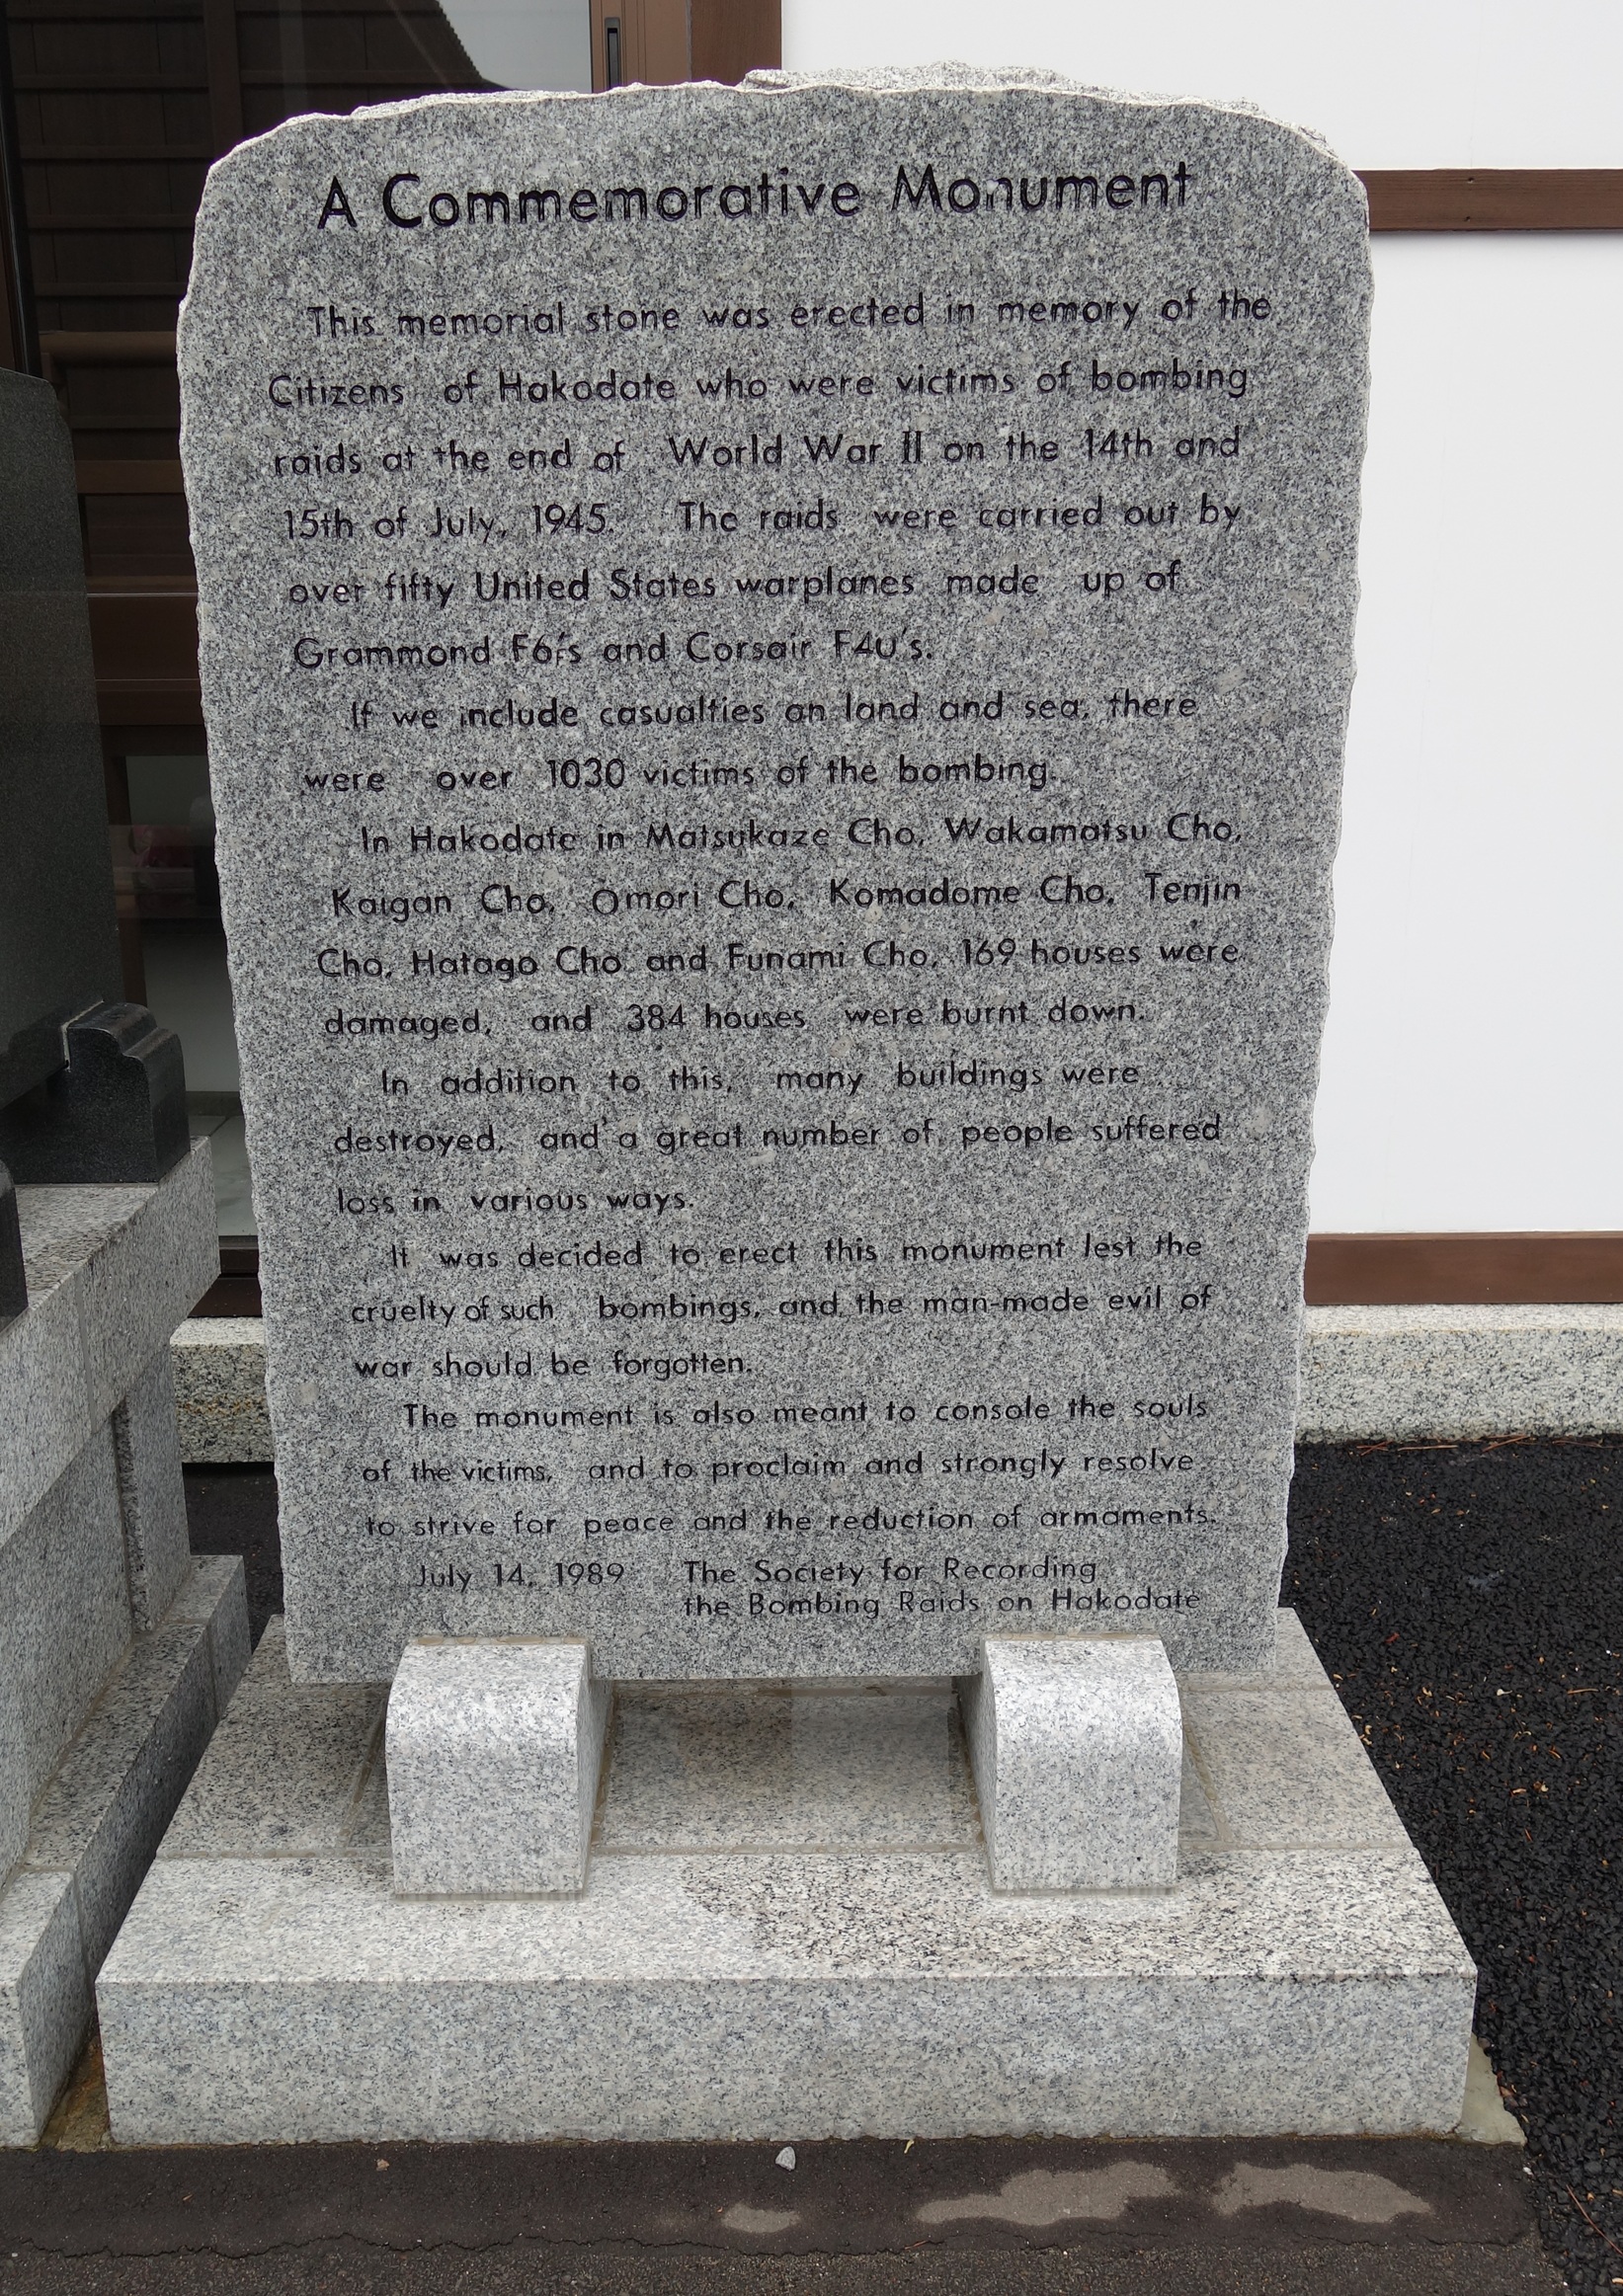 A Commemorative Monument
This memorial stone was erected in memory of the
Citizens of Hakodate who were victims of bombing
raids at the end of World War II on the 14th and
15th of July, 1945. The raids were carried out by
over fifty United States warplanes made up of
Grammond F6F's and Corsair F4U's.
If we include casualties on land and sea, there
were over 1030 victims of the bombing.
In Hakodate in Matsukaze Cho, Wakamatsu Cho,
Kaigan Cho, Omori Cho, Komadome Cho, Tenjin
Cho, Hatago Cho and Funami Cho, 169 houses were
damaged, and 384 houses were burnt down.
In addition to this, many buildings were
destroyed, and a great number of people suffered
loss in various ways.
It was decided to erect this monument lest the
cruelty of such bombings, and the man-made evil of
war should be forgotten.
The monument is also meant to console the souls
of the victims, and to proclaim and strongly resolve
to strive for peace and the reduction of armaments.
July 14, 1989 The Society for Recording
the Bombing Raids on Hakodate